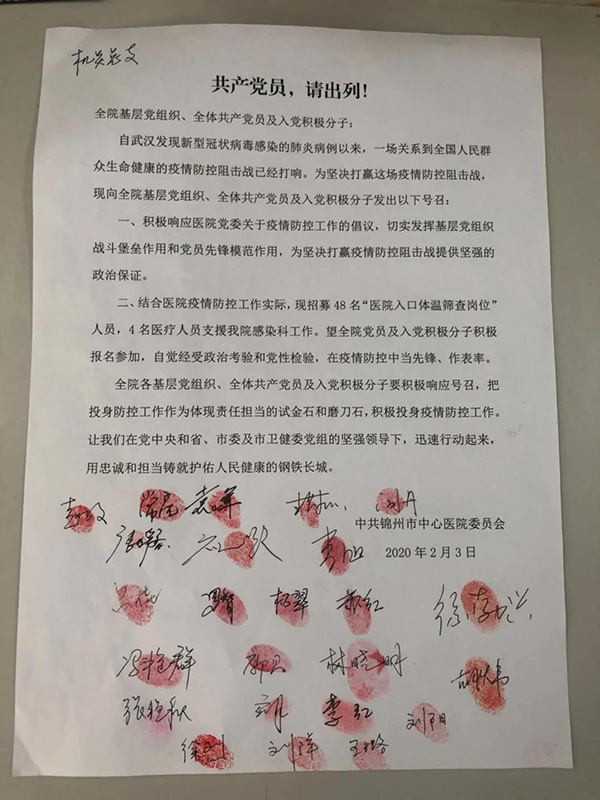 机关总支
共产党员，请出列！
全院基层党组织、全体共产党员及入党积极分子：
自武汉发现新型冠状病毒感染的肺炎病例以来，一场关系到全国人民群
众生命健康的疫情防控阻击战已经打响。为坚决打赢这场疫情防控阻击战，
现向全院基层党组织、全体共产党员及入党积极分子发出以下号召：
一、积极响应医院党委关于疫情防控工作的倡议，切实发挥基层党组织
战斗堡垒作用和党员先锋模范作用，为坚决打赢疫情防控阻击战提供坚强的
政治保证。
二、结合医院疫情防控工作实际，现招募 48 名“医院入口体温筛查岗位”
人员，4 名医疗人员支援我院感染科工作。望全院党员及入党积极分子积极
报名参加，自觉经受政治考验和党性检验，在疫情防控中当先锋、作表率。
全院各基层党组织、全体共产党员及入党积极分子要积极响应号召，把
投身防控工作作为体现责任担当的试金石和磨刀石，积极投身疫情防控工作。
让我们在党中央和省、市委及市卫健委党组的坚强领导下，迅速行动起来，
用忠诚和担当铸就护佑人民健康的钢铁长城。
中共锦州市中心医院委员会
2020 年 2 月 3 日
杨翠
林晓明
李红
刘阳
刘萍